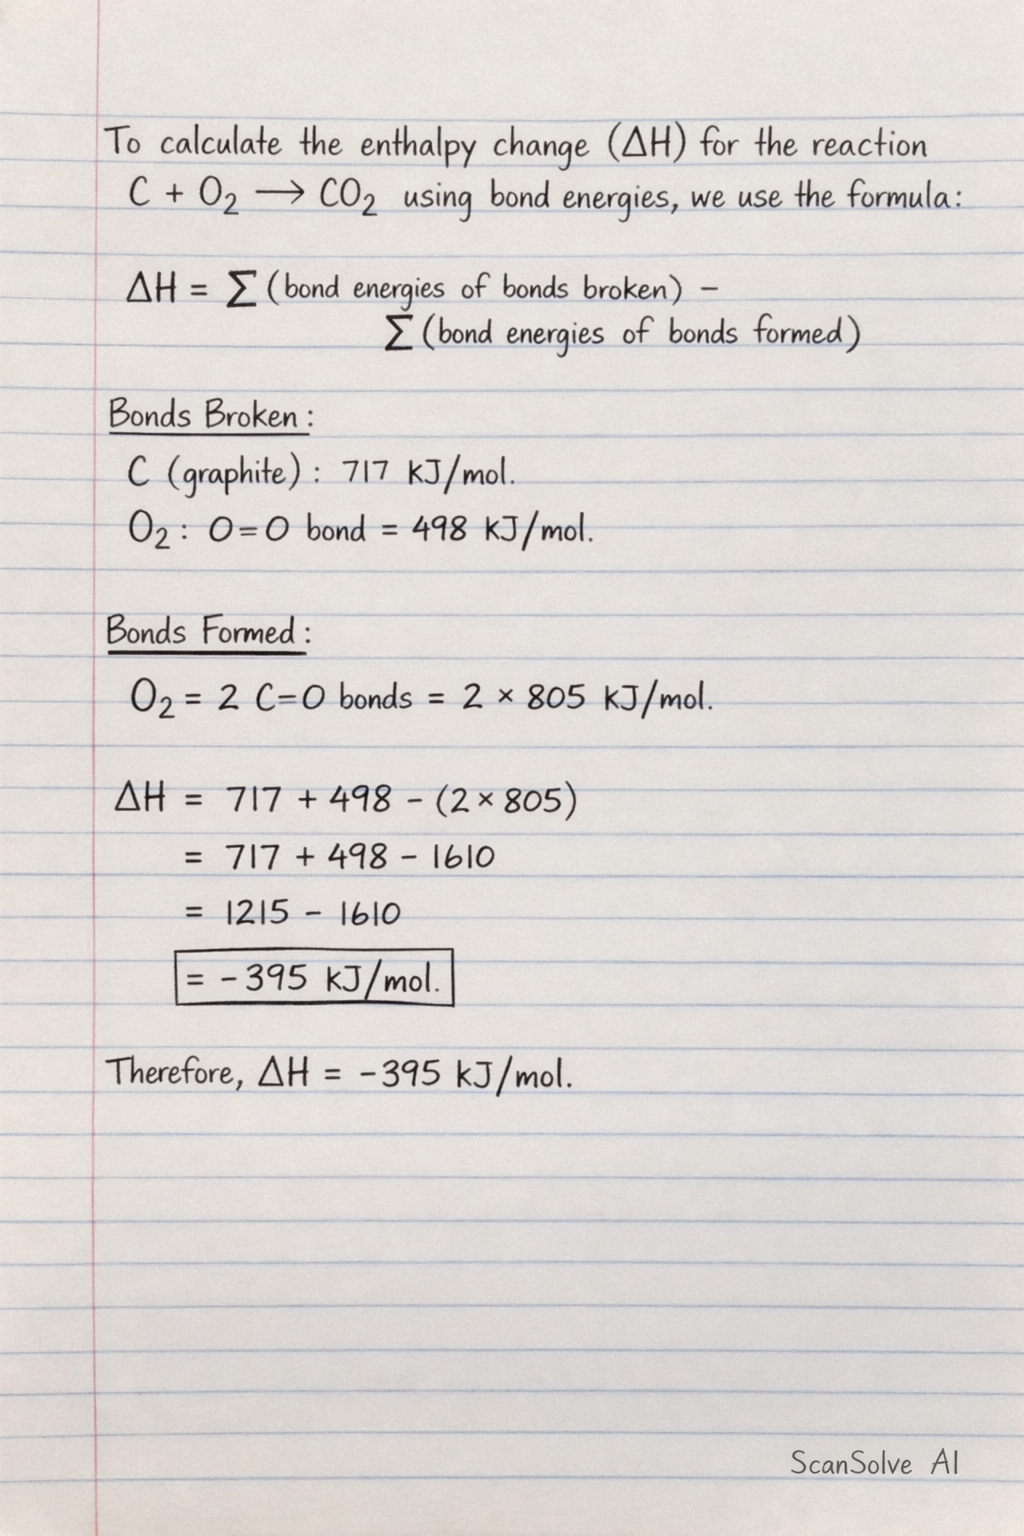 To calculate the enthalpy change (ΔH) for the reaction
C + O₂ ⟶ CO₂ using bond energies, we use the formula:
ΔH = Σ (bond energies of bonds broken) −
Σ (bond energies of bonds formed)
Bonds Broken:
C (graphite): 717 kJ/mol.
O₂: O=O bond = 498 kJ/mol.
Bonds Formed:
O₂ = 2 C=O bonds = 2 × 805 kJ/mol.
ΔH = 717 + 498 − (2 × 805)
= 717 + 498 − 1610
= 1215 − 1610
= −395 kJ/mol.
Therefore, ΔH = −395 kJ/mol.
ScanSolve AI